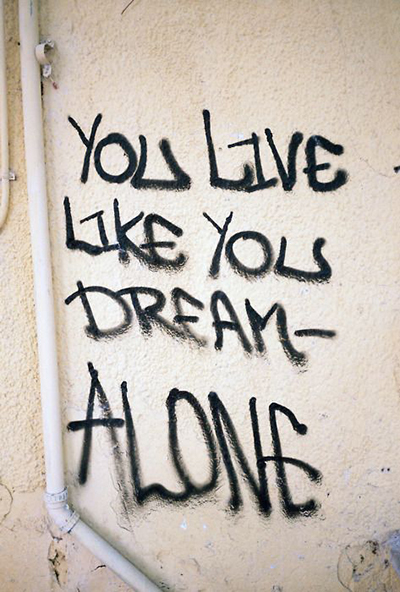 YOU LIVE
LIKE YOU
DREAM-
ALONE